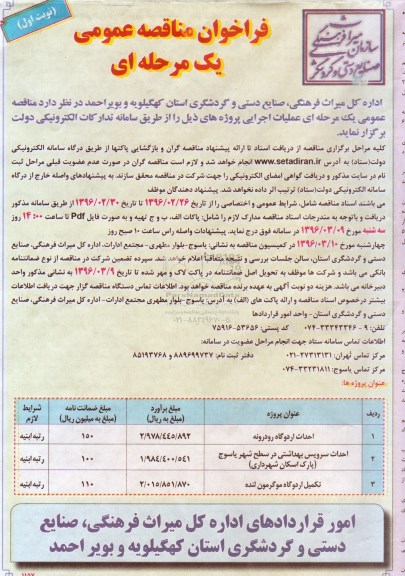 (نوبت اول)
فراخوان مناقصه عمومی
یک مرحله ای
سازمان میراث فرهنگی
صنایع دستی و گردشگری
اداره کل میراث فرهنگی، صنایع دستی و گردشگری استان کهگیلویه و بویراحمد در نظر دارد مناقصه
عمومی یک مرحله ای عملیات اجرایی پروژه های ذیل را از طریق سامانه تدارکات الکترونیکی دولت
برگزار نماید.
کلیه مراحل برگزاری مناقصه از دریافت اسناد تا ارائه پیشنهاد مناقصه گران و بازگشایی پاکتها از طریق درگاه سامانه الکترونیکی
دولت(ستاد) به آدرس www.setadiran.ir انجام خواهد شد و لازم است مناقصه گران در صورت عدم عضویت قبلی مراحل ثبت
نام در سایت مذکور و دریافت گواهی امضای الکترونیکی را جهت شرکت در مناقصه محقق سازند. به پیشنهادهای واصله خارج از درگاه
سامانه الکترونیکی دولت(ستاد) ترتیب اثر داده نخواهد شد. پیشنهاد دهندگان موظف
می باشند اسناد مناقصه شامل، شرایط عمومی و اختصاصی را از تاریخ ۱۳۹۶/۰۲/۲۶ تا تاریخ ۱۳۹۶/۰۲/۳۰ از طریق سامانه مذکور
دریافت و باتوجه به مندرجات اسناد مناقصه مدارک لازم را شامل: پاکات الف، ب و ج تهیه و به صورت فایل Pdf تا ساعت ۱۴:۰۰ روز
سه شنبه مورخ ۱۳۹۶/۰۳/۰۹ در سامانه فوق درج نماید. پیشنهادات واصله راس ساعت ۱۰ صبح روز
چهارشنبه مورخ ۱۳۹۶/۰۳/۱۰ در کمیسیون مناقصه به نشانی: یاسوج-بلوار مطهری- مجتمع ادارات، اداره کل میراث فرهنگی، صنایع
دستی و گردشگری استان، سالن جلسات بررسی و نتیجه متعاقبا اعلام خواهد شد. سپرده تضمین شرکت در مناقصه از نوع ضمانتنامه
بانکی می باشد و شرکت ها موظف به تحویل اصل ضمانتنامه در پاکت لاک و مهر شده تا تاریخ ۱۳۹۶/۰۳/۹ به نشانی مذکور واحد
دبیرخانه می باشد. هزینه دو نوبت آگهی به عهده برنده مناقصه خواهد بود. اطلاعات تماس دستگاه مناقصه گزار جهت دریافت اطلاعات
بیشتر درخصوص اسناد مناقصه و ارائه پاکت های (الف) به آدرس: یاسوج-بلوار مطهری مجتمع ادارات- اداره کل میراث فرهنگی، صنایع
دستی و گردشگری استان- واحد امور قراردادها
تلفن: ۹ - ۳۳۲۴۳۳۴۶-۰۷۴ کد پستی: ۵۳۶۵۶-۷۵۹۱۶
اطلاعات تماس سامانه ستاد جهت انجام مراحل عضویت در سامانه:
مرکز تماس تهران: ۲۷۳۱۳۱۳۱-۰۲۱ دفتر ثبت نام: ۸۸۹۶۹۷۳۷ و ۸۵۱۹۳۷۶۸
مرکز تماس یاسوج: ۳۳۲۳۱۸۱۱-۰۷۴
عنوان پروژه ها:
ردیف عنوان پروژه مبلغ برآورد (مبلغ به ریال) مبلغ ضمانت نامه (مبلغ به میلیون ریال) شرایط لازم
۱ احداث اردوگاه رودرونه ۲/۹۷۸/۴۴۵/۸۹۲ ۱۵۰ رتبه ابنیه
۲ احداث سرویس بهداشتی در سطح شهر یاسوج (پارک اسکان شهرداری) ۱/۹۸۴/۴۰۰/۵۴۱ ۱۰۰ رتبه ابنیه
۳ تکمیل اردوگاه موگرمون لنده ۲/۰۱۵/۸۵۱/۸۷۰ ۱۱۰ رتبه ابنیه
امور قراردادهای اداره کل میراث فرهنگی، صنایع
دستی و گردشگری استان کهگیلویه و بویر احمد